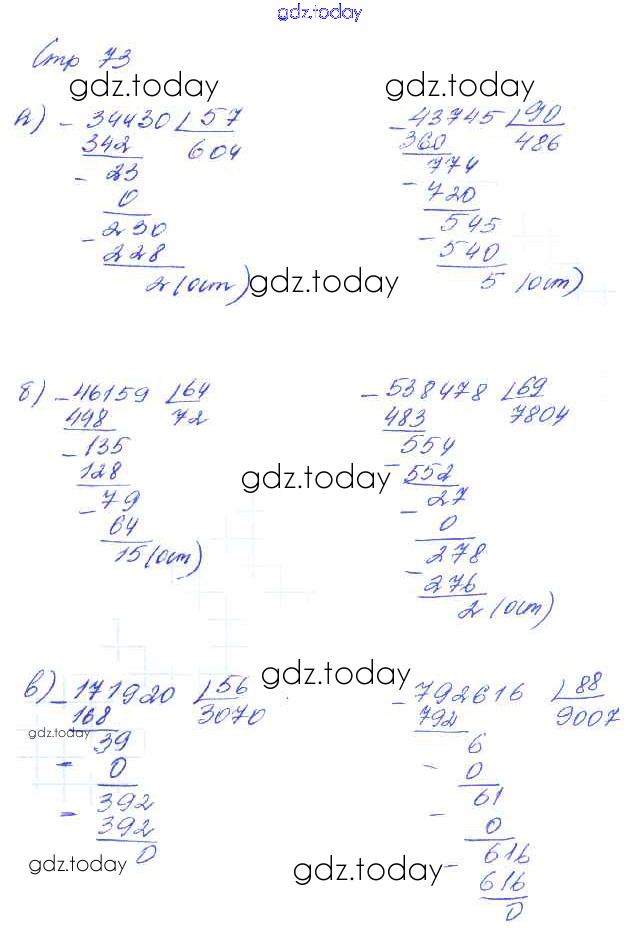 gdz.today
Стр 73
gdz.today
gdz.today
а) - 34430 57
342 604
- 23
0
- 230
228
2 (ост)
- 43745 90
360 486
- 774
720
- 545
540
5 (ост)
gdz.today
б) - 46159 64
448 72
- 135
128
- 79
64
15 (ост)
- 538478 69
483 7804
- 554
552
- 27
0
- 278
276
2 (ост)
gdz.today
в) - 171920 56
168 3070
- 39
0
- 392
392
0
- 792616 88
792 9007
- 6
0
- 61
0
- 616
616
0
gdz.today
gdz.today
gdz.today
gdz.today